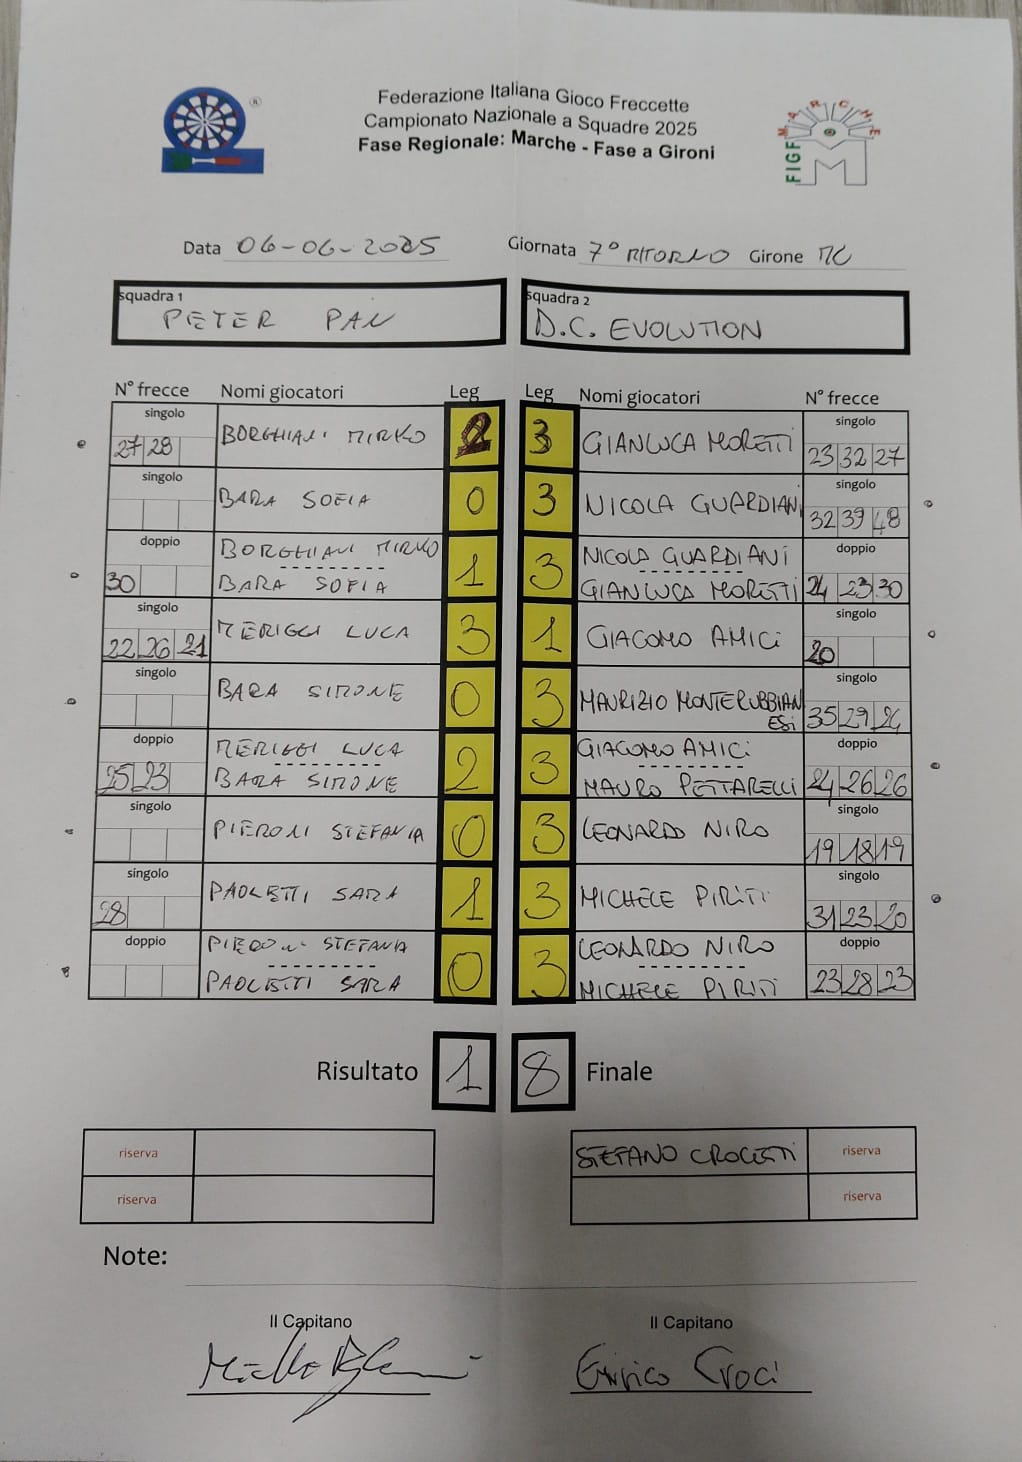 Federazione Italiana Gioco Freccette
Campionato Nazionale a Squadre 2025
Fase Regionale: Marche - Fase a Gironi
MARCHE
FIGF M
Data 06-06-2025 Giornata 7° RITORNO Girone MC
squadra 1 squadra 2
PETER PAN D.C. EVOLUTION
N° frecce Nomi giocatori Leg Leg Nomi giocatori N° frecce
singolo singolo
27 28 BORGHIANI MIRKO 2 3 GIANLUCA MORETTI 23 32 27
singolo singolo
BARA SOFIA 0 3 NICOLA GUARDIANI 32 39 48
doppio BORGHIANI MIRKO NICOLA GUARDIANI doppio
30 BARA SOFIA 1 3 GIANLUCA MORETTI 24 23 30
singolo singolo
22 26 21 MERIGGI LUCA 3 1 GIACOMO AMICI 20
singolo singolo
BARA SIMONE 0 3 MAURIZIO MONTERUBBIAN
ESI 35 29 24
doppio MERIGGI LUCA GIACOMO AMICI doppio
25 23 BARA SIMONE 2 3 MAURO PETTARELLI 24 26 26
singolo singolo
PIERONI STEFANIA 0 3 LEONARDO NIRO 19 18 19
singolo singolo
28 PAOLETTI SARA 1 3 MICHELE PIRITI 31 23 20
doppio PIERONI STEFANIA LEONARDO NIRO doppio
PAOLETTI SARA 0 3 MICHELE PIRITI 23 28 23
Risultato 1 8 Finale
riserva STEFANO CROCETTI riserva
riserva riserva
Note:
Il Capitano Il Capitano
Enrico Croci